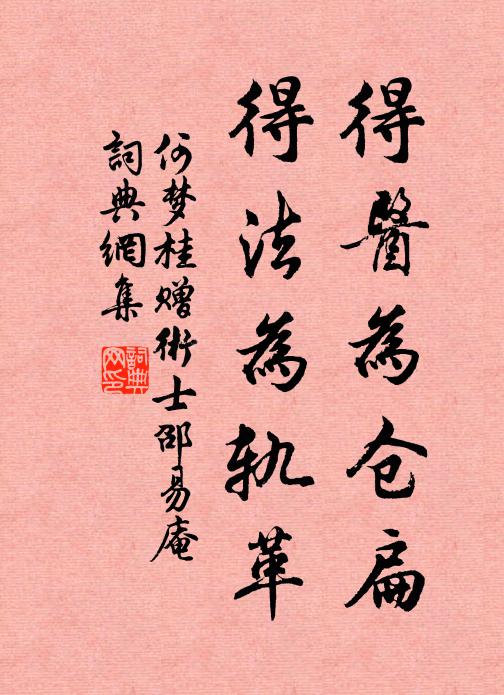 得醫為仓扁
得法為轨革
何梦桂赠術士邵易庵
詞典網集
詞典网印